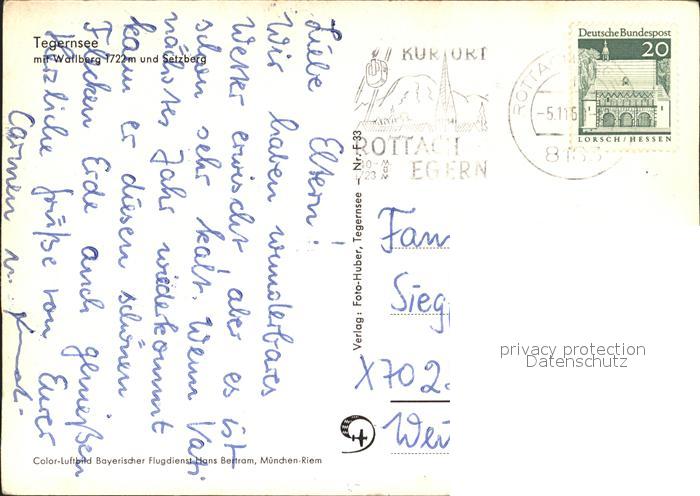 Tegernsee
mit Wallberg 1722m und Setzberg
Liebe Eltern!
Wir haben wunderbares
Wetter erwischt aber es ist
schon sehr kalt. Wenn Vati
nächstes Jahr wiederkommt
kann er diesen schönen
Flecken Erde auch genießen
Herzliche Grüße von Eurer
Carmen u.
Color-Luftbild Bayerischer Flugdienst Hans Bertram, München-Riem
Verlag: Foto-Huber, Tegernsee – Nr. F 33
KURORT
ROTTACH
EGERN
ROTTACH
-5.11.6
8183
Deutsche Bundespost
20
LORSCH/HESSEN
Fam
Sieg
X702
Wei
privacy protection
Datenschutz